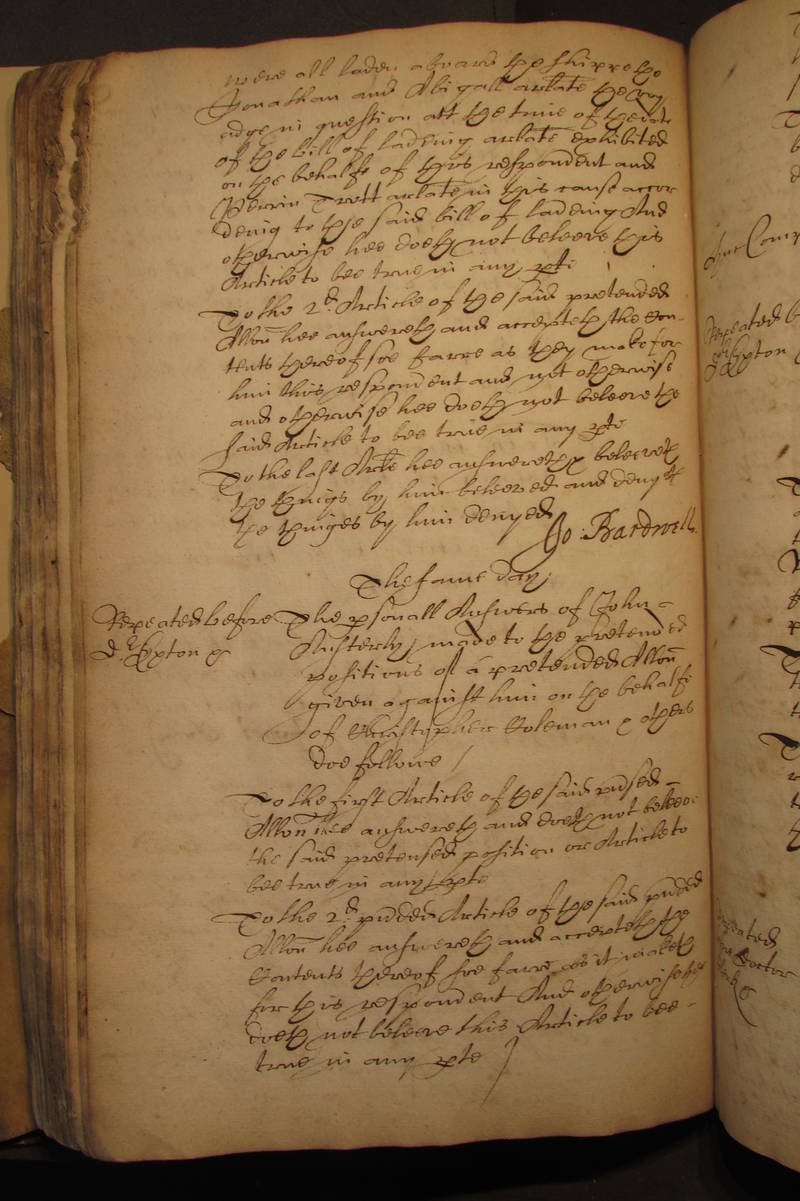 were all laden aboard the shippe the
Jonathan and Abigall arlate the voy
adge in question att the time of the date
of the bill of ladeing arlate exhibited
on the behalfe of this respondent and
Perrin Trott arlate in this cause accor
deing to the said bill of ladeing And
otherwise hee doeth not beleeve this
Article to bee true in any pte
To the 2d. Article of the said pretended
Allon hee answereth and accepteth the Con-
tents thereof soe farre as they make for
him this respondent and not otherwise
and otherwise hee doeth not beleeve the
said Article to bee true in any pte
To the last Arle hee answereth & beleeveth
the things by him beleeved and denyeth
the thinges by him denyed
Jo: Bardwell.
The same day
Repeated before
dr. Exton &
The psonall Answers of John
Austerby made to the pretended
positions of a pretended Allon
given against him on the behalfe
of Christopher Coleman & others
doe followe /
To the first Article of the said ptsed
Allon hee answereth and doeth not beleeve
the said pretensed position or Article to
bee true in any pte
To the 2d. ptded Article of the said ptded
Allon hee answereth and accepteth the
Contents thereof soe farre as it maketh
for this respondent And otherwise hee
doeth not beleeve this Article to bee
true in any pte
Repeated
Exton
Doctor